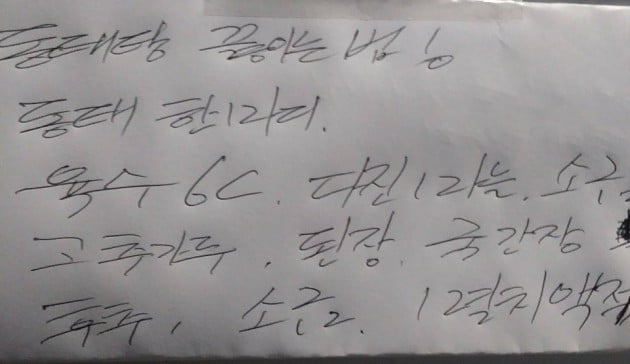 동태탕 끓이는법
동태 한마리.
육수 6C. 다진마늘. 소금
고추가루. 된장. 국간장
후추, 소금. 멸치액젓